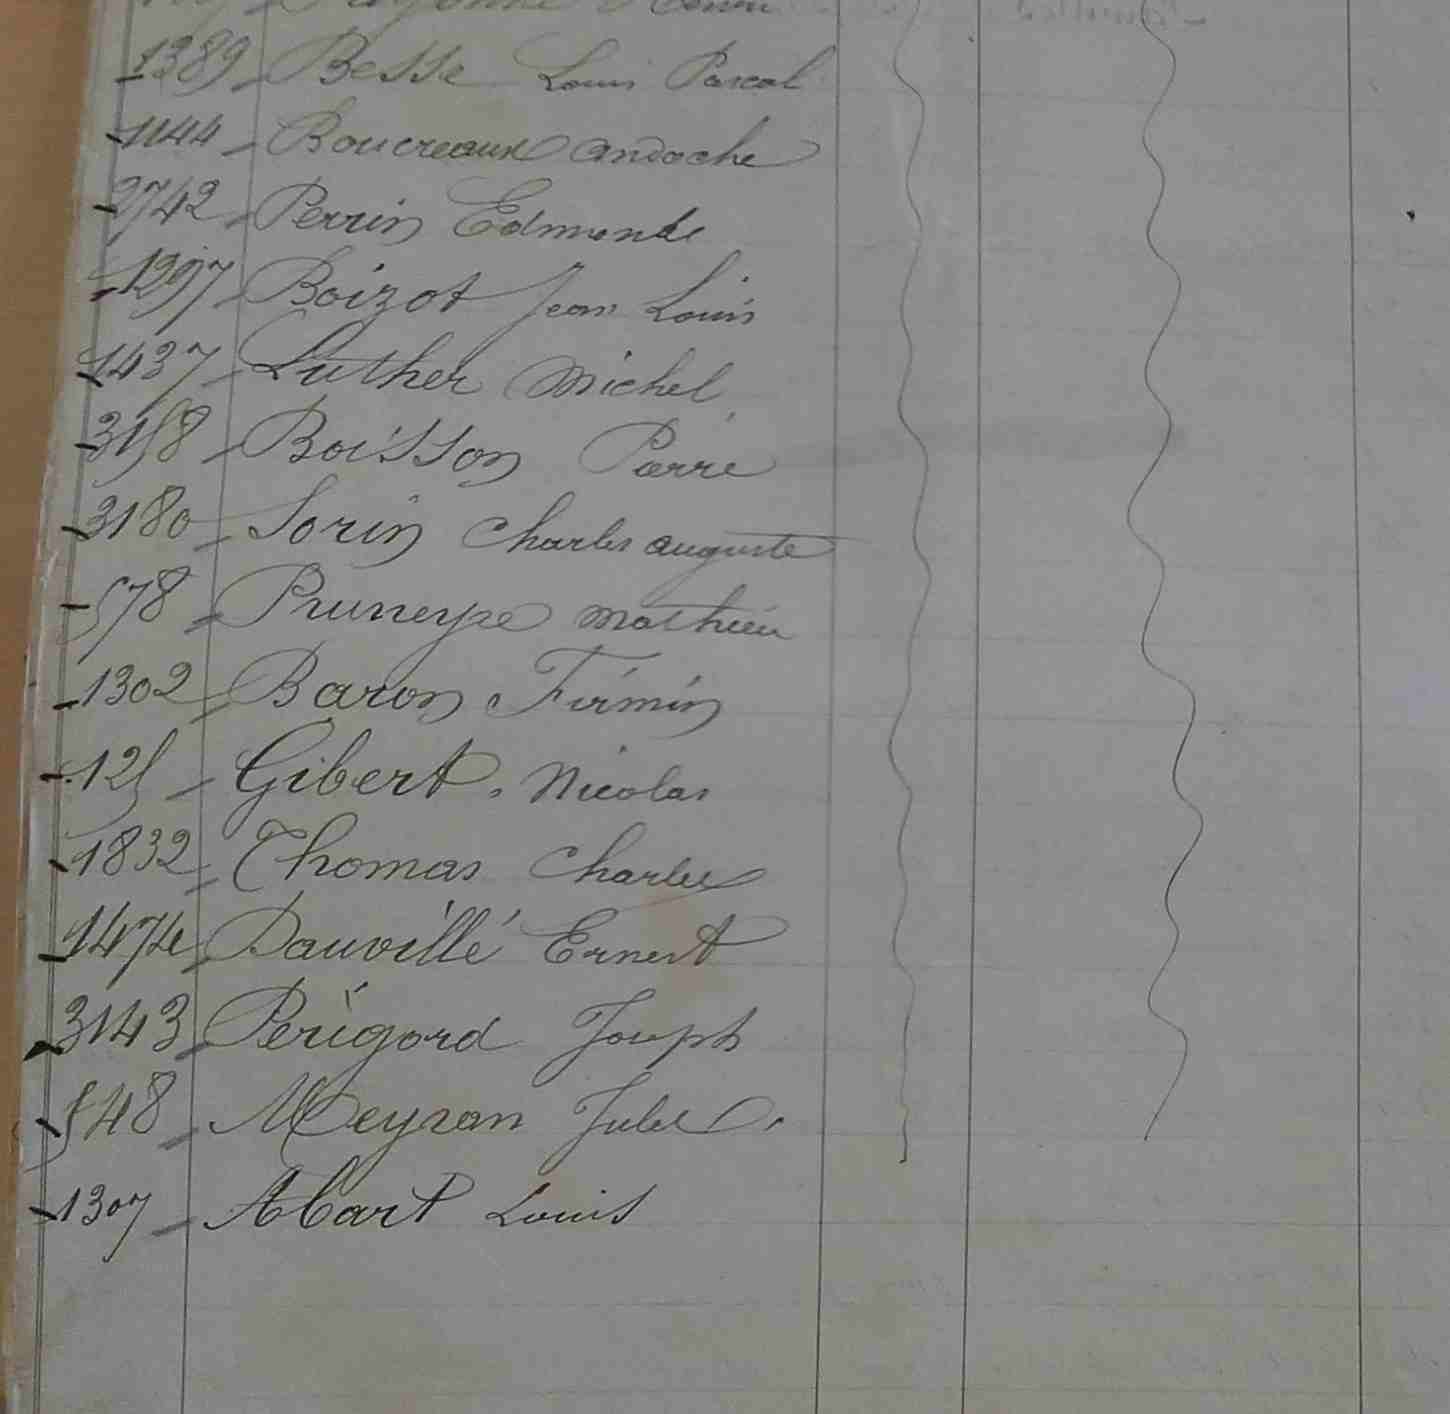 1389 Besse Louis Pascal
1144 Boucreaux Andoche
2742 Perrin Edmonde
1297 Boizot Jean Louis
1437 Luther Michel
3158 Boisson Pierre
3180 Sorin Charles Auguste
578 Pruneyre Mathieu
1302 Baron Firmin
125 Gibert. Nicolas
1832 Thomas Charles
1474 Dauvillé Ernest
3143 Périgord Joseph
548 Meyran Jules
1307 Abart Louis